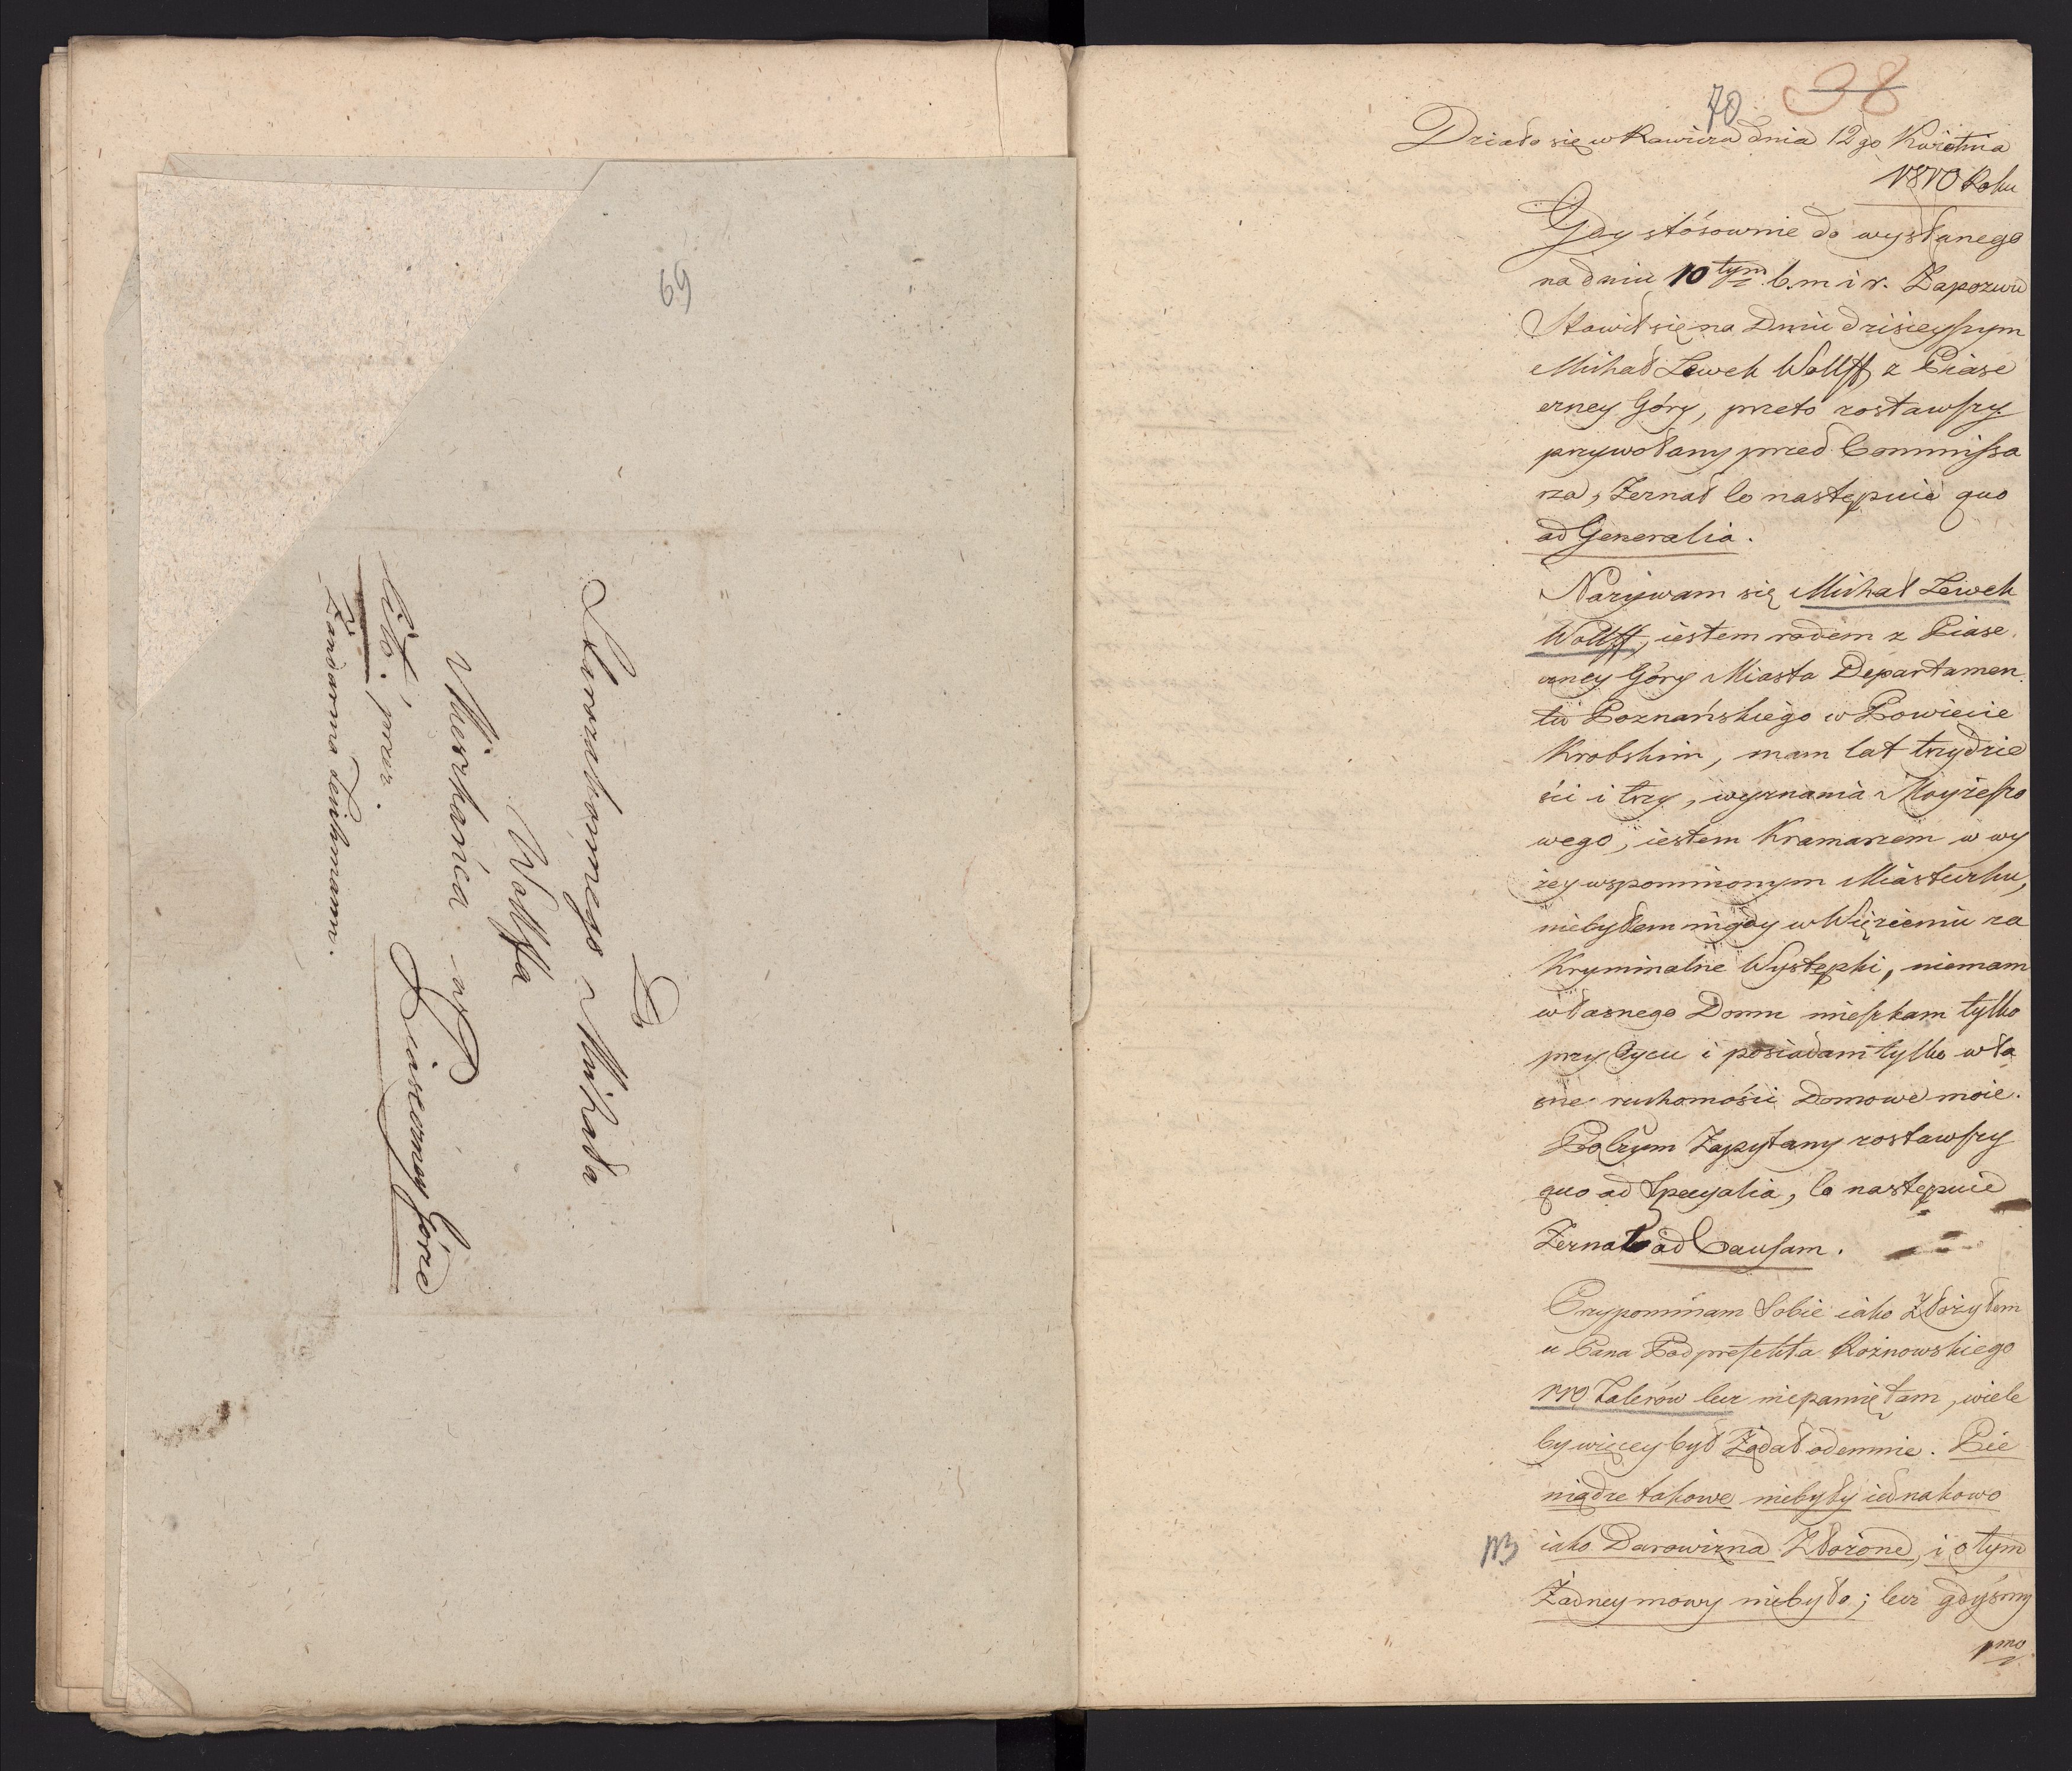 69
D
Starozakonnego Michała
Wollffa
Mieszkańca w Piasecznej Górze
Cito, przez
Żandarma Teichmann.
70 38
Działo się w Rawiczu dnia 12go Kwietnia
1810 Roku
Gdy stósownie do wysłanego
na dniu 10tym b. m i r. Zapozwu
Stawił się na Dniu dzisieyszym
Michał Lewek Wollff z Piase
czney Góry, przeto zostawszy
przywołany przed Commissa
rza, Zeznał co następuie quo
ad Generalia.
Nazywam się Michał Lewek
Wollff, iestem rodem z Piase
czney Góry Miasta Departamen
tu Poznańskiego w Powiecie
Krobskim, mam lat trzydzie
ści i trzy, wyznania Moyżeszo
wego, iestem Kramarzem w wy
żey wspomnionym Miasteczku,
niebyłem nigdy w Więzieniu za
Kryminalne Występki, niemam
własnego Domu mieszkam tylko
przy Oycu i posiadam tylko wła
sne ruchomości Domowe moie.
Poczym Zapytany zostawszy
quo ad Specyalia, co następuie
Zeznał ad Causam.
Przypominam Sobie iako Złożyłem
u Pana Podprefekta Rożnowskiego
110 Talerów lecz niepamiętam, wiele
by więcey był Żądał odemnie. Pie
niądze takowe niebyły iednakowo
NB iako Darowizna Złożone, i o tym
Żadney mowy niebyło; lecz gdyśmy
1mo